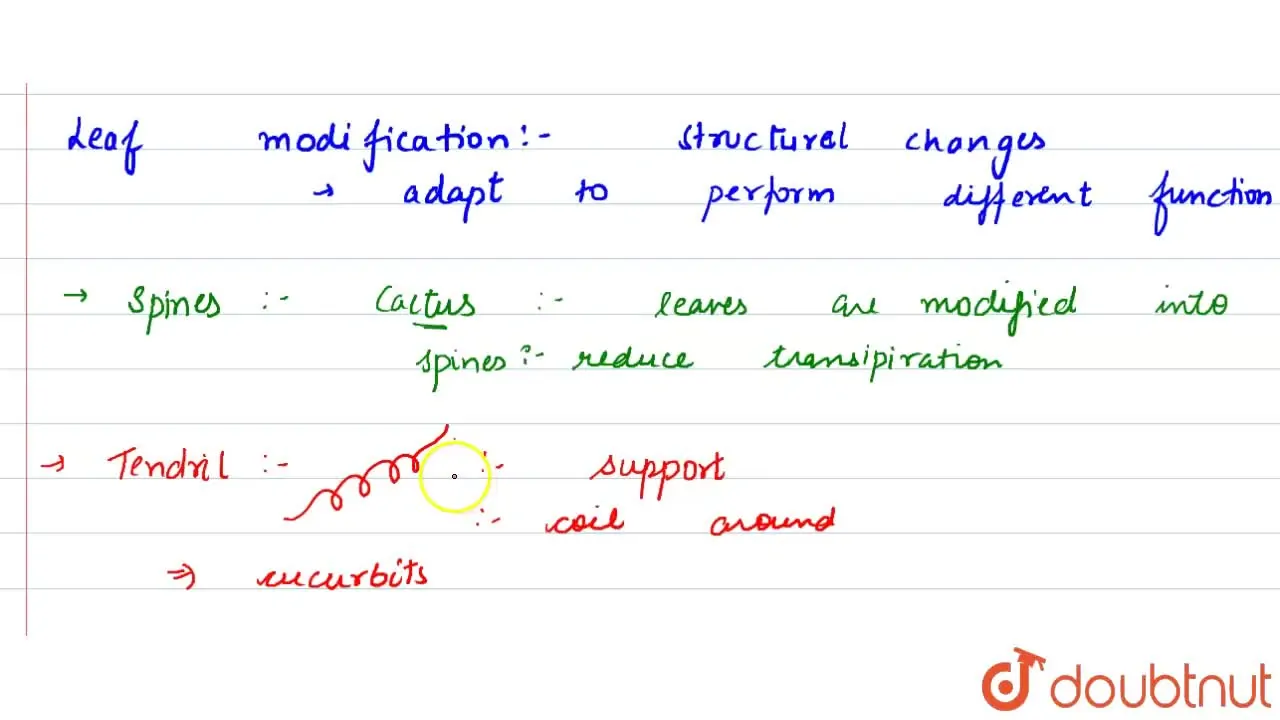 Leaf modification :- structural changes
→ adapt to perform different function
→ Spines :- Cactus :- leaves are modified into
spines :- reduce transipiration
→ Tendril :- :- support
:- coil around
⇒ cucurbits
doubtnut